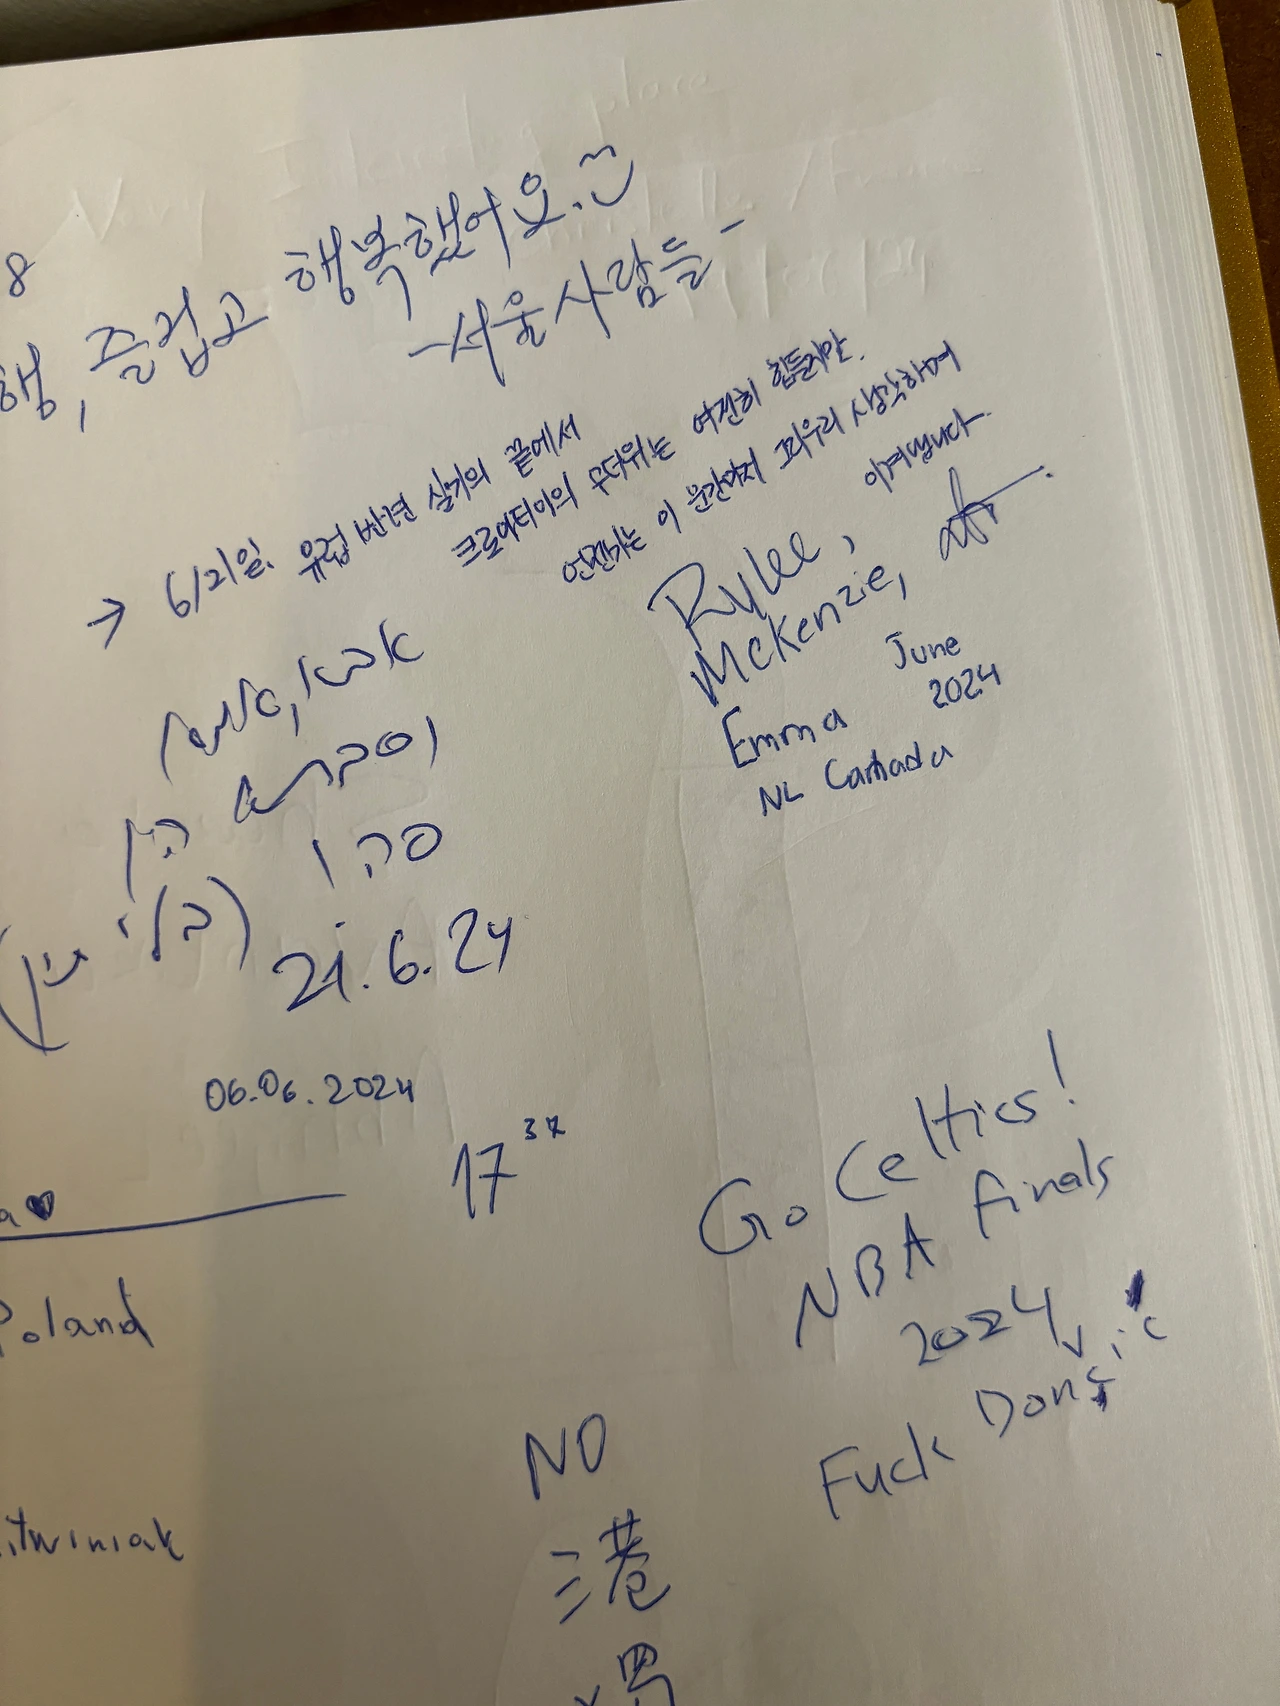 8
행, 즐겁고 행복했어요.
-서울사람들-
→ 6/21일. 유럽 반년 살기의 끝에서
크로아티아의 무더위는 여전히 힘들지만.
언젠가는 이 순간마저 그리우리 생각하며
이겨냅니다.
Rylee,
McKenzie,
Emma June
2024
NL Canada
אבא, אמא
וסבתא
סהו
21.6.24
06.06.2024
17 37
a♥
Poland
itwiniak
Go Celtics!
NBA finals
2024
Fuck Donćić
NO
港